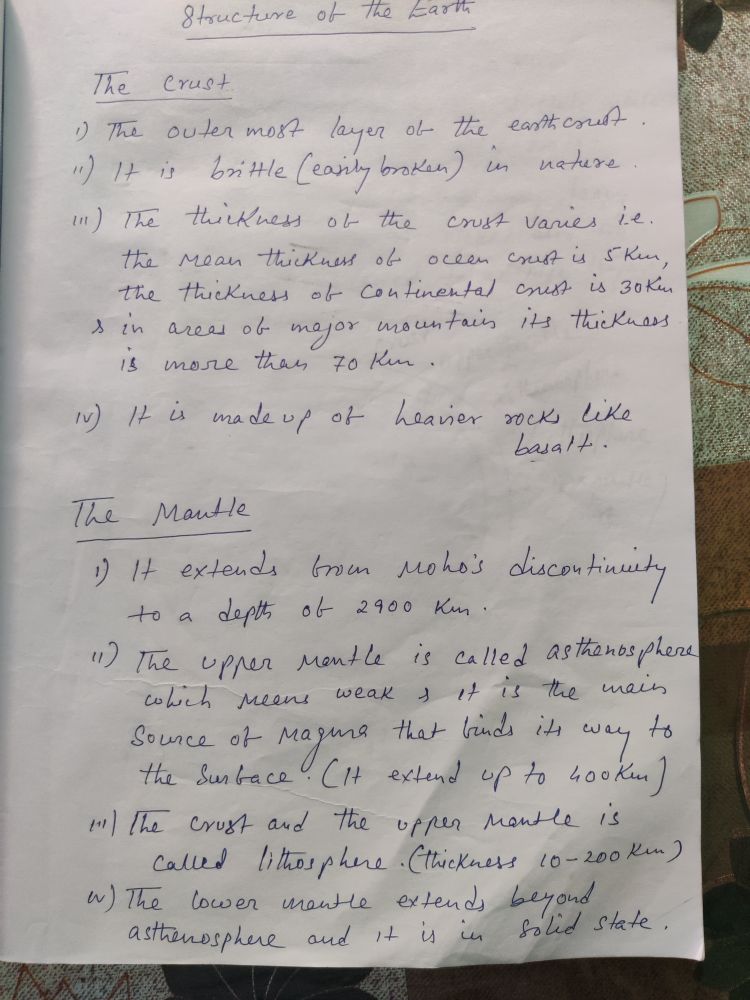 Structure of the Earth
The Crust
i) The outer most layer of the earth crust.
ii) It is brittle (easily broken) in nature.
iii) The thickness of the crust varies i.e.
the mean thickness of ocean crust is 5 Km,
the thickness of continental crust is 30 Km
& in areas of major mountain its thickness
is more than 70 Km.
iv) It is made up of heavier rocks like
basalt.
The Mantle
i) It extends from Moho's discontinuity
to a depth of 2900 Km.
ii) The upper mantle is called asthenosphere
which means weak & it is the main
source of magma that finds its way to
the surface. (It extend up to 400 Km)
iii) The crust and the upper mantle is
called lithosphere. (thickness 10-200 Km)
iv) The lower mantle extends beyond
asthenosphere and it is in solid state.